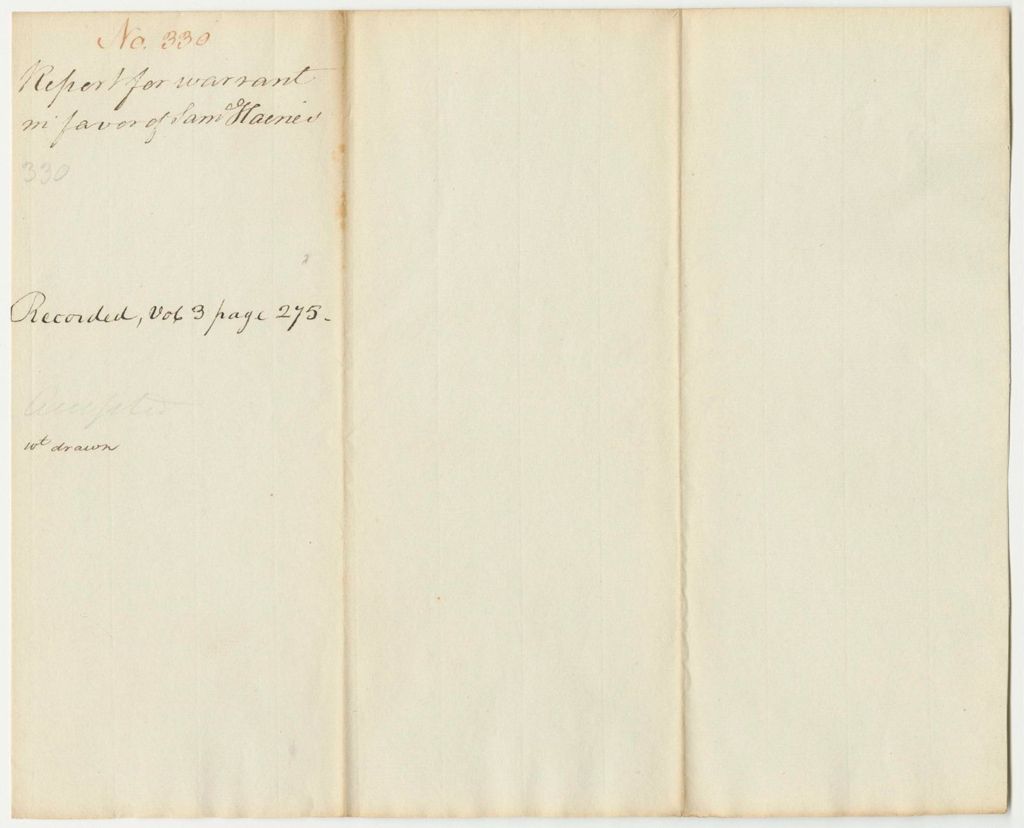 No. 330
Report for warrant
in favor of Saml Haines
330
Recorded, Vol 3 page 275.
Accepted
wt drawn